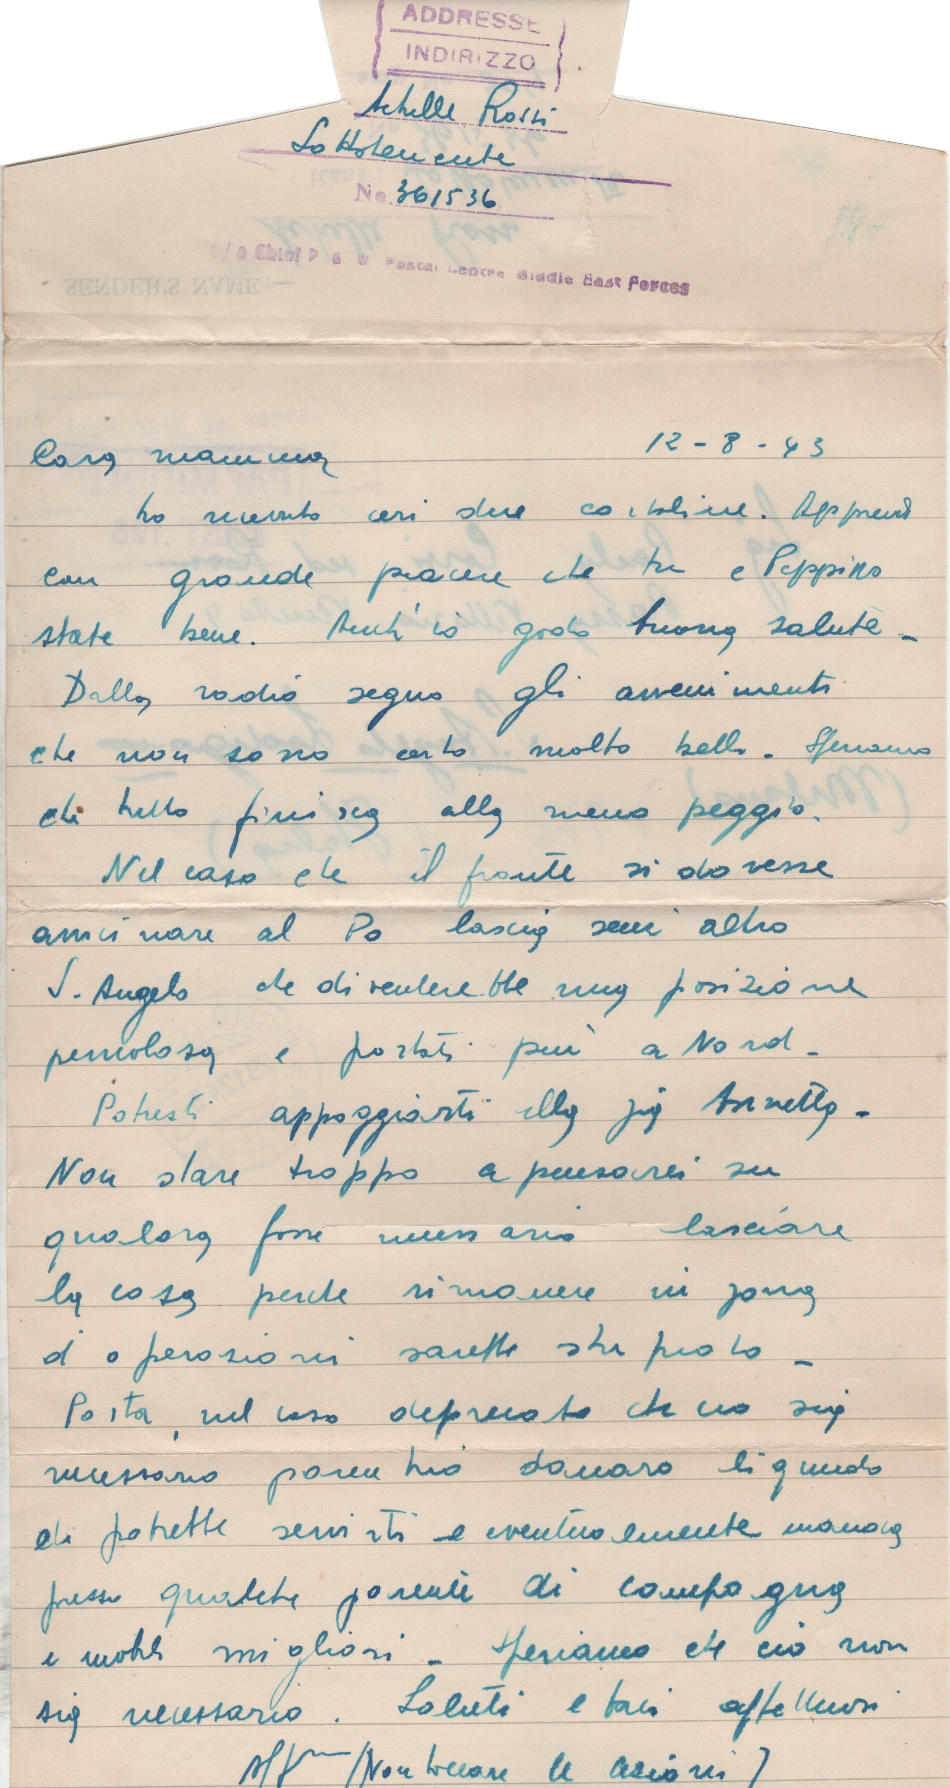 ADDRESSE
INDIRIZZO
Achille Rossi
Sottotenente
No. 361536
c/o Chief P o W Postal Centre Middle East Forces
SENDER'S NAME:—
Cara mamma 12-8-43
ho ricevuto ieri due cartoline. Apprendo
con grande piacere che tu e Peppino
state bene. Anch'io godo buona salute -
Dalla radio seguo gli avvenimenti
che non sono certo molto belli. Speriamo
che tutto finisca alla meno peggio.
Nel caso che il fronte si dovesse
avvicinare al Po lascia senz'altro
S. Angelo che diventerebbe una posizione
pericolosa e portati più a Nord -
Potresti appoggiarti alla zia Annetta -
Non stare troppo a pensarci su
qualora fosse necessario lasciare
la casa perché rimanere in zona
d'operazioni sarebbe stupido -
Porta, nel caso deprecato che ciò sia
necessario parecchio danaro liquido
che potrebbe servirti e eventualmente manda
presso qualche parente di campagna
i mobili migliori - Speriamo che ciò non
sia necessario. Saluti e baci affettuosi
(Non toccare le azioni)